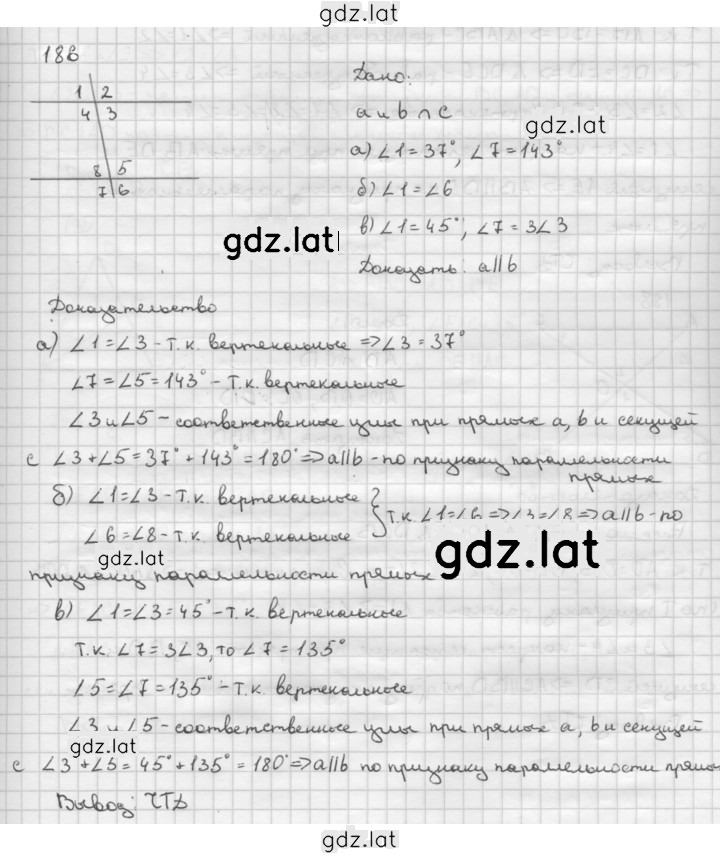 gdz.lat
186
1 2
4 3
8 5
7 6
Дано:
a и b ∩ c
gdz.lat
а) ∠1=37°, ∠7=143°
б) ∠1=∠6
в) ∠1=45°, ∠7=3∠3
gdz.lat
Доказать: a||b
Доказательство
а) ∠1=∠3 - т.к. вертекальные => ∠3=37°
∠7=∠5=143° - т.к. вертекальные
∠3 и ∠5 - соответственные углы при прямых a, b и секущей
c ∠3+∠5=37°+143°=180° => a||b - по признаку параллельности
прямых
б) ∠1=∠3 - т.к. вертекальные
∠6=∠8 - т.к. вертекальные
т.к. ∠1=∠6 => ∠3=∠8 => a||b - по
gdz.lat
gdz.lat
признаку параллельности прямых
в) ∠1=∠3=45° - т.к. вертекальные
т.к. ∠7=3∠3, то ∠7=135°
∠5=∠7=135° - т.к. вертекальные
∠3 и ∠5 - соответственные углы при прямых a, b и секущей
gdz.lat
c ∠3+∠5=45°+135°=180° => a||b по признаку параллельности прямы
Вывод: ЧТД
gdz.lat